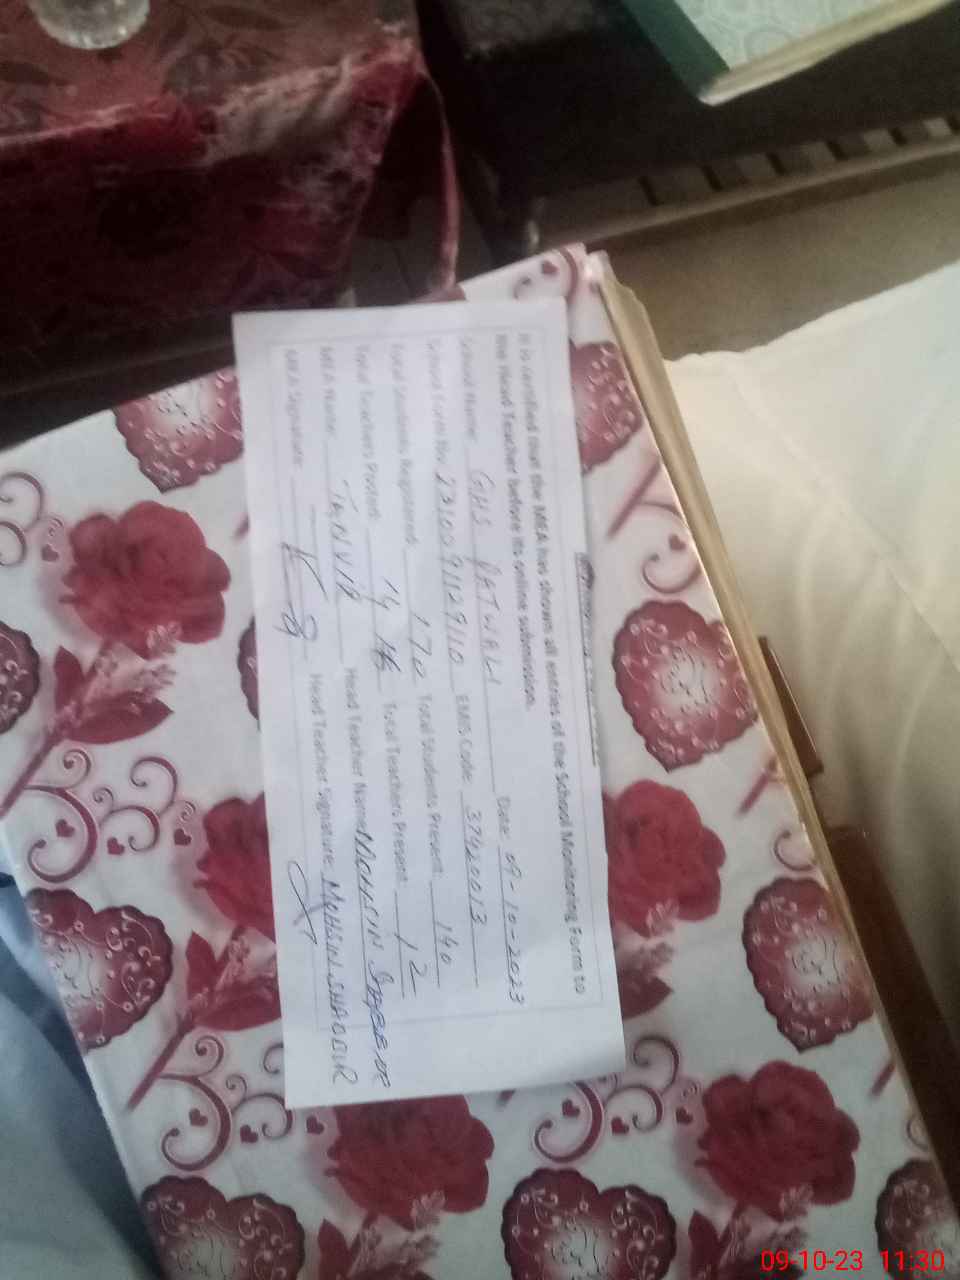 It is certified that the MEA has shown all entries of the School Monitoring Form to
the Head Teacher before its online submission.
School Name: GHS Date: 09-10-2023
School Form No. EMIS Code: 37420013
Total Students Registered: 170 Total Students Present: 140
Total Teachers Posted: Total Teachers Present: 12
MEA Name: TANVIR Head Teacher Name: MOHSIN
MEA Signature: Head Teacher Signature: MOHSIN SHABBIR
09-10-23 11:30